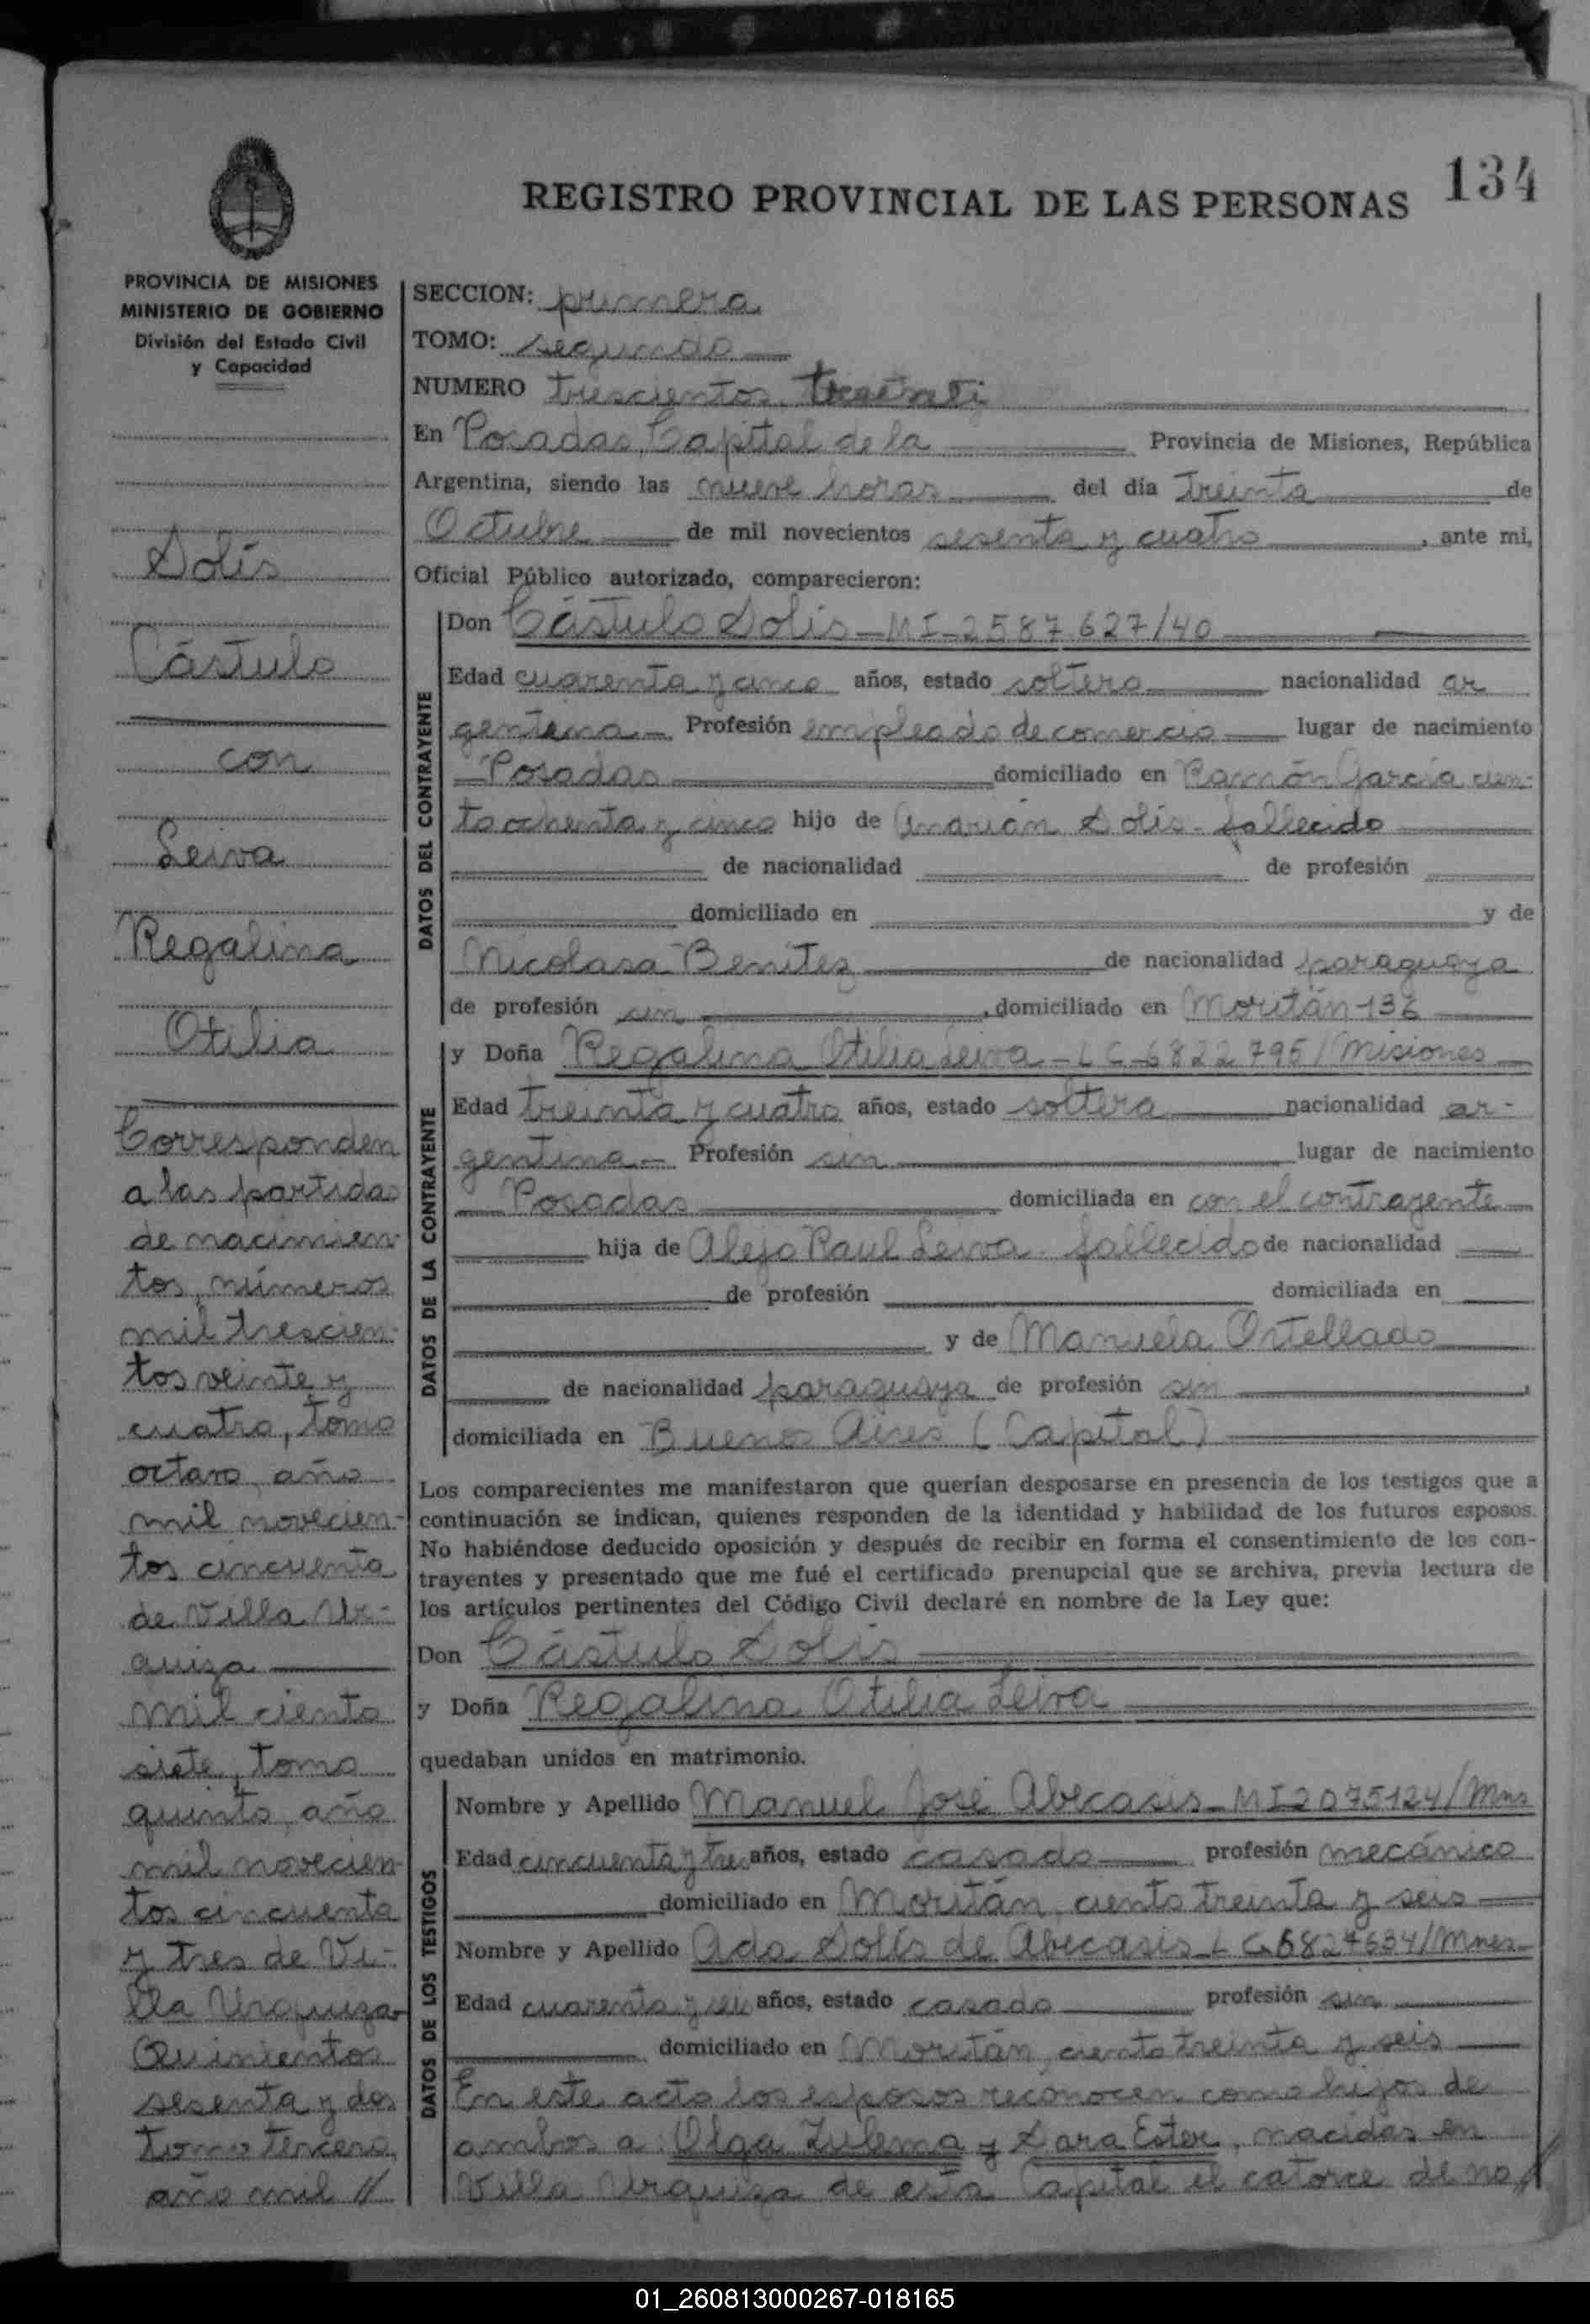 134
REGISTRO PROVINCIAL DE LAS PERSONAS
PROVINCIA DE MISIONES
MINISTERIO DE GOBIERNO
División del Estado Civil
y Capacidad
Solís
Cástulo
con
Leiva
Regalina
Otilia
Corresponden
a las partidas
de nacimien-
tos, números
mil trescien-
tos veinte y
cuatro, tomo
octavo, año
mil novecien-
tos cincuenta
de Villa Ur-
quiza
mil ciento
siete, tomo
quinto, año
mil novecien-
tos cincuenta
y tres de Vi-
lla Urquiza
Quinientos
sesenta y dos
tomo tercero,
año mil //
SECCION: primera
TOMO: segundo
NUMERO trescientos
En Posadas, Capital de la Provincia de Misiones, República
Argentina, siendo las nueve horas del día Treinta de
Octubre de mil novecientos sesenta y cuatro, ante mi,
Oficial Público autorizado, comparecieron:
DATOS DEL CONTRAYENTE
Don Cástulo Solís - MI - 2587627/40
Edad cuarenta y cinco años, estado soltero nacionalidad ar
gentina - Profesión empleado de comercio lugar de nacimiento
Posadas domiciliado en Ramón García cien-
to ochenta y cinco hijo de Solís - fallecido
de nacionalidad de profesión
domiciliado en y de
Nicolasa Benítez de nacionalidad paraguaya
de profesión sin, domiciliado en Moritán 136
DATOS DE LA CONTRAYENTE
y Doña Regalina Otilia Leiva - LC - 6822795/Misiones
Edad treinta y cuatro años, estado soltera nacionalidad ar-
gentina - Profesión sin lugar de nacimiento
Posadas domiciliada en con el contrayente
hija de Alejo Raul Leiva - fallecido de nacionalidad
de profesión domiciliada en
y de Manuela Ortellado
de nacionalidad paraguaya de profesión sin,
domiciliada en Buenos Aires (Capital)
Los comparecientes me manifestaron que querían desposarse en presencia de los testigos que a
continuación se indican, quienes responden de la identidad y habilidad de los futuros esposos.
No habiéndose deducido oposición y después de recibir en forma el consentimiento de los con-
trayentes y presentado que me fué el certificado prenupcial que se archiva, previa lectura de
los artículos pertinentes del Código Civil declaré en nombre de la Ley que:
Don Cástulo Solís
y Doña Regalina Otilia Leiva
quedaban unidos en matrimonio.
DATOS DE LOS TESTIGOS
Nombre y Apellido Manuel José Abecasis - MI 2075124/Mns
Edad cincuenta y tres años, estado casado profesión mecánico
domiciliado en Moritán, ciento treinta y seis
Nombre y Apellido Ada Solís de Abecasis - LC
Edad cuarenta y años, estado casada profesión sin
domiciliado en Moritán, ciento treinta y seis
En este acto los esposos reconocen como hijos de
ambos a: Olga Zulema y Sara Ester, nacidas en
Villa Urquiza de esta Capital el catorce de no//
01_260813000267-018165